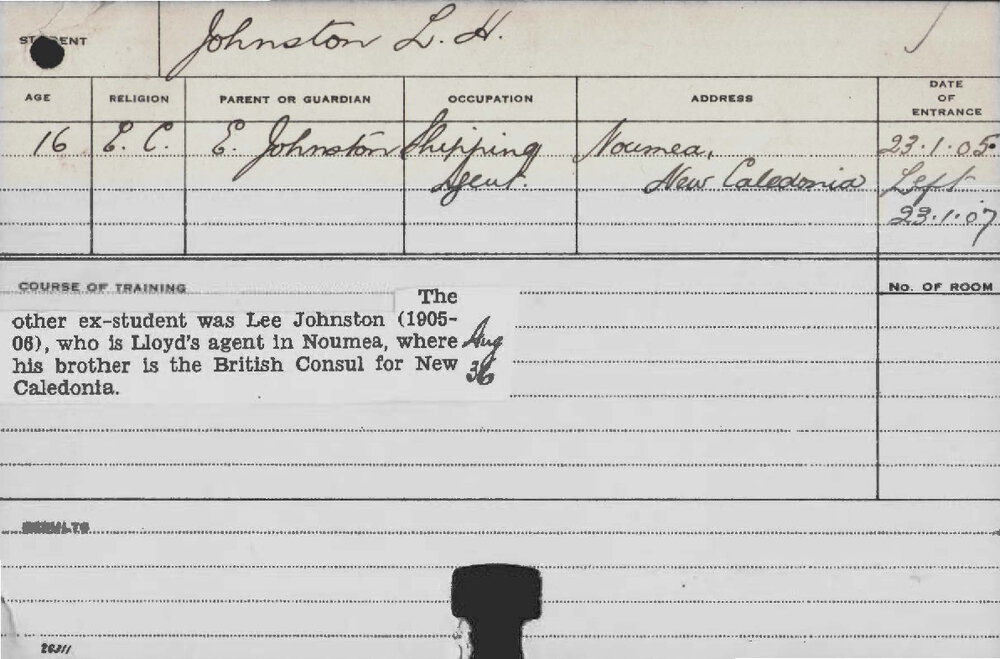 STUDENT Johnston L. H.
AGE RELIGION PARENT OR GUARDIAN OCCUPATION ADDRESS DATE OF ENTRANCE
16 E. C. E. Johnston Shipping Noumea, 23.1.05.
Agent. New Caledonia Left
23.1.07
COURSE OF TRAINING No. OF ROOM
The
other ex-student was Lee Johnston (1905-
06), who is Lloyd's agent in Noumea, where Aug
his brother is the British Consul for New 36
Caledonia.
RESULTS
26311